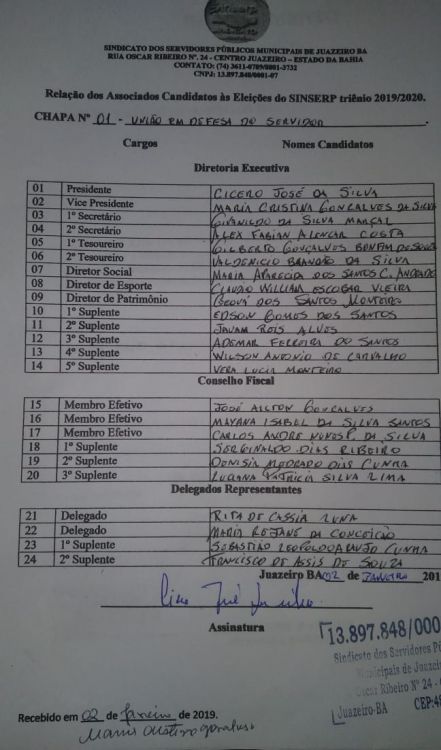 SINDICATO DOS SERVIDORES PÚBLICOS MUNICIPAIS DE JUAZEIRO BA
RUA OSCAR RIBEIRO Nº. 24 - CENTRO JUAZEIRO – ESTADO DA BAHIA
CONTATO: (74) 3611-0789/8801-3732
CNPJ: 13.897.848/0001-07
Relação dos Associados Candidatos às Eleições do SINSERP triênio 2019/2020.
CHAPA Nº 01 - UNIÃO EM DEFESA DO SERVIDOR
Cargos Nomes Candidatos
Diretoria Executiva
01 Presidente CICERO JOSÉ DA SILVA
02 Vice Presidente MARIA CRISTINA GONCALVES DA SILVA
03 1º Secretário GIVANILDO DA SILVA MARÇAL
04 2º Secretário ALEX FABIAN ALENCAR COSTA
05 1º Tesoureiro GILBERTO GONÇALVES BENFIM DE SOUZA
06 2º Tesoureiro VALDENICIO BRANDÃO DA SILVA
07 Diretor Social MARIA APARECIDA DOS SANTOS C. ANDRADE
08 Diretor de Esporte CLAUDIO WILLIAM ESCOBAR VIEIRA
09 Diretor de Patrimônio GEOVÁ DOS SANTOS MONTEIRO
10 1º Suplente EDSON GOMES DOS SANTOS
11 2º Suplente JAVAM REIS ALVES
12 3º Suplente ADEMAR FERREIRA DO SANTOS
13 4º Suplente WILSON ANTONIO DE CARVALHO
14 5º Suplente VERA LUCIA MONTEIRO
Conselho Fiscal
15 Membro Efetivo JOSÉ AILTON GONCALVES
16 Membro Efetivo MAYANA ISABEL DA SILVA SANTOS
17 Membro Efetivo CARLOS ANDRE NUNES P. DA SILVA
18 1º Suplente SERGINALDO DIAS RIBEIRO
19 2º Suplente DENISIA MEDRADO DIAS CUNHA
20 3º Suplente LUCIANA PATRICIA SILVA LIMA
Delegados Representantes
21 Delegado RITA DE CASSIA LUNA
22 Delegado MARIA REJANE DA CONCEIÇÃO
23 1º Suplente SEBASTIÃO LEOPOLDO ARAUJO CUNHA
24 2º Suplente FRANCISCO DE ASSIS DE SOUZA
Juazeiro BA 02 de JANEIRO 201
Assinatura
13.897.848/000
Sindicato dos Servidores Pú
Municipais de Juazei
Oscar Ribeiro Nº 24 -
Juazeiro-BA CEP:48
Recebido em 02 de Janeiro de 2019.
Maria Cristina Gonçalves